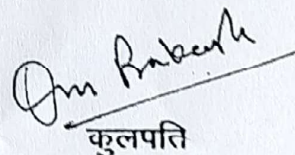 Om Prakash
कुलपति